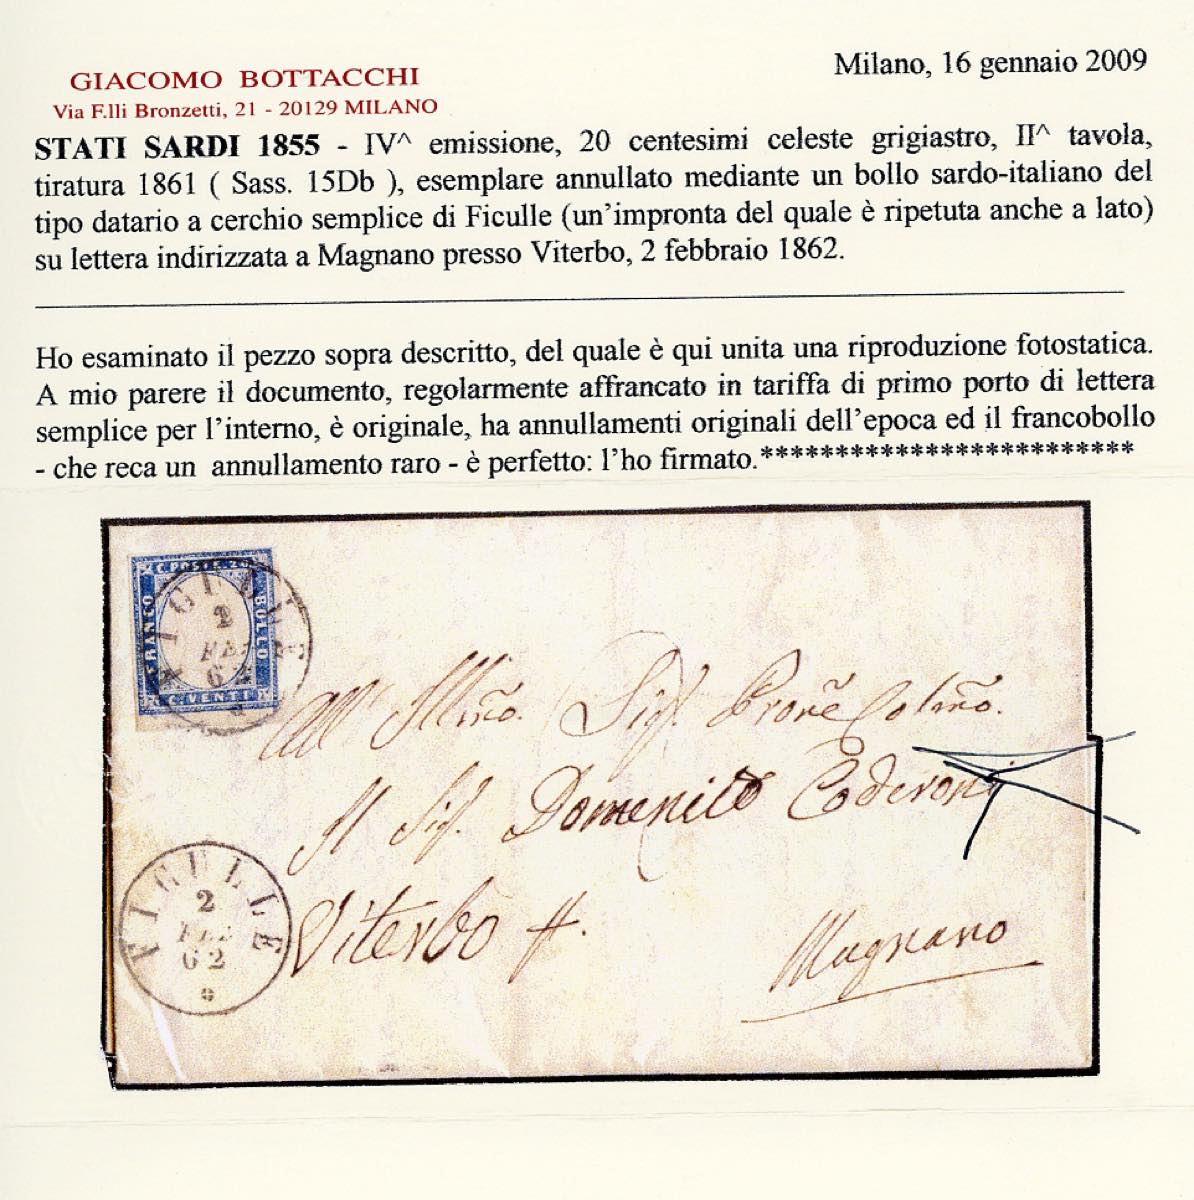 GIACOMO BOTTACCHI
Via F.lli Bronzetti, 21 - 20129 MILANO
Milano, 16 gennaio 2009
STATI SARDI 1855 - IV^ emissione, 20 centesimi celeste grigiastro, II^ tavola,
tiratura 1861 ( Sass. 15Db ), esemplare annullato mediante un bollo sardo-italiano del
tipo datario a cerchio semplice di Ficulle (un'impronta del quale è ripetuta anche a lato)
su lettera indirizzata a Magnano presso Viterbo, 2 febbraio 1862.
Ho esaminato il pezzo sopra descritto, del quale è qui unita una riproduzione fotostatica.
A mio parere il documento, regolarmente affrancato in tariffa di primo porto di lettera
semplice per l'interno, è originale, ha annullamenti originali dell'epoca ed il francobollo
- che reca un annullamento raro - è perfetto: l'ho firmato.*************************
C. POSTE 20
FRANCO
BOLLO
C. VENTI
FICULLE
2
FEB
62
All' Illmo. Sig. Prone Colmo.
Il Sig. Domenico Coderoni
Viterbo
Magnano
FICULLE
2
FEB
62